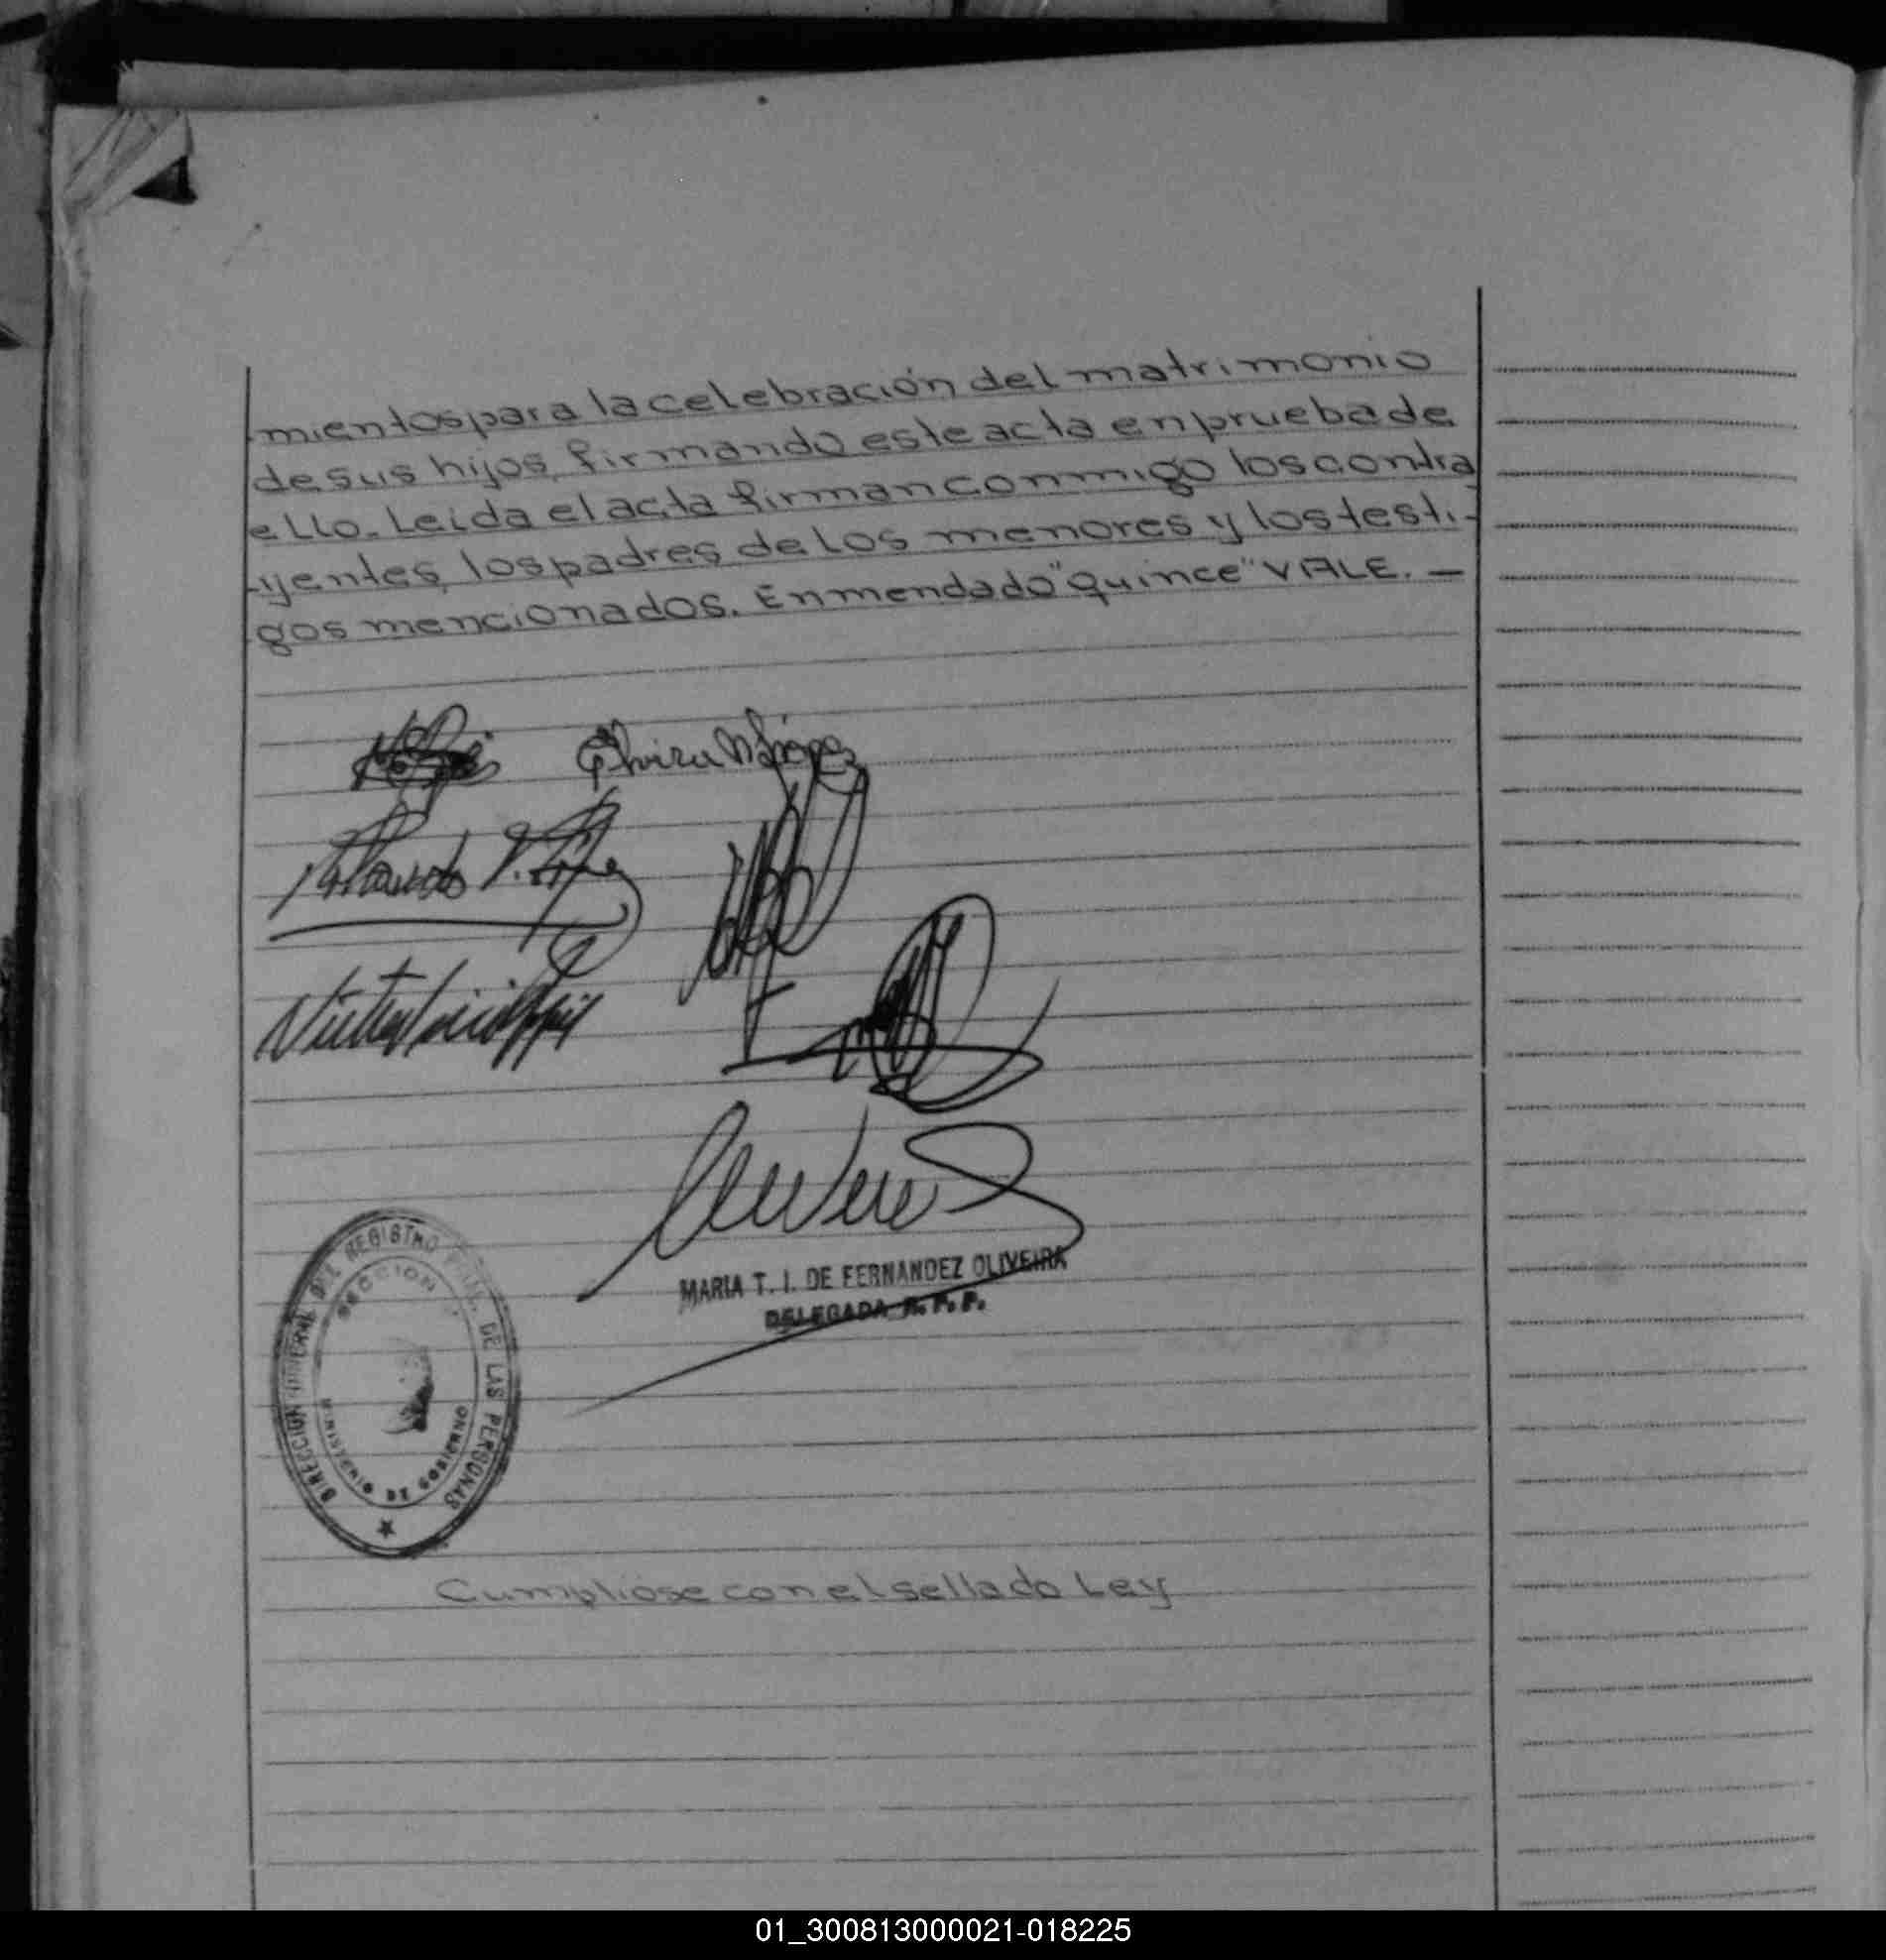 mientos para la celebración del matrimonio
de sus hijos, firmando este acta en prueba de
ello. Leida el acta firman conmigo los contra
yentes, los padres de los menores y los testi-
gos mencionados. Enmendado "quince" VALE. —
Elvira N López
MARIA T. I. DE FERNANDEZ OLIVEIRA
DELEGADA R. P. P.
DIRECCION GENERAL DEL REGISTRO DE LAS PERSONAS
SECCION
MINISTERIO DE GOBIERNO
Cumplióse con el sellado Ley
01_300813000021-018225